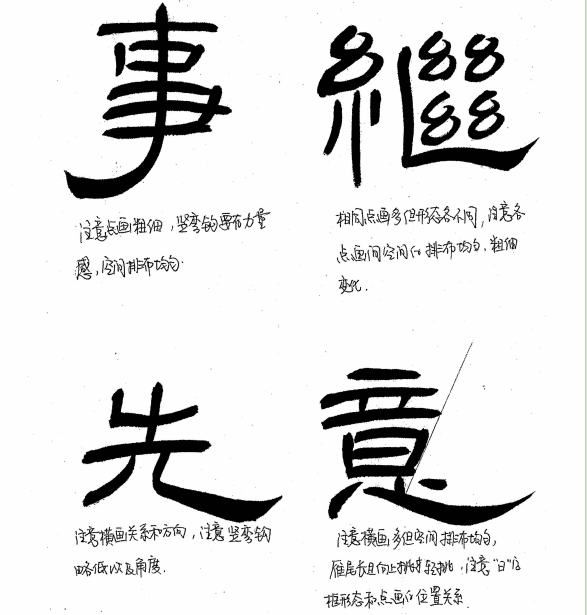 事
注意点画粗细，竖弯钩要有力量
感，空间排布均匀.
繼
相同点画多但形态各不同，注意各
点画间空间的排布均匀、粗细
变化.
先
注意横画关系和方向，注意竖弯钩
略低以及角度.
意
注意横画多但空间排布均匀，
雁尾长且向上挑时轻挑，注意“日”的
框形态和点画的位置关系.